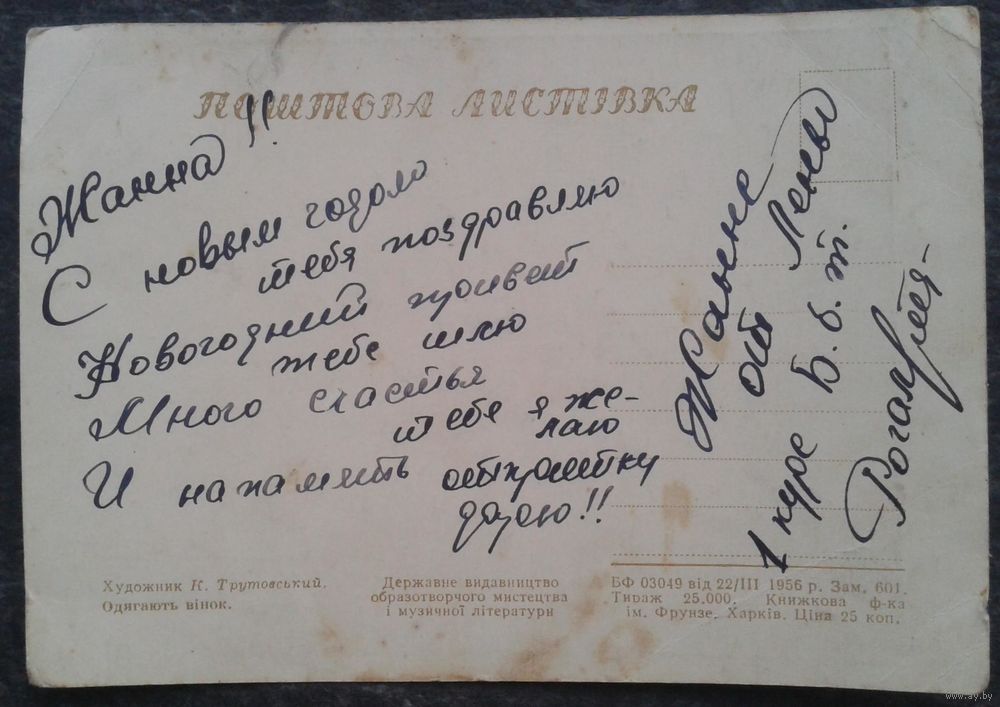 ПОШТОВА ЛИСТІВКА
Жанна!!
С новым годом
тебя поздравляю
Новогодний привет
тебе шлю
Много счастья
тебе я же-
лаю
И на память открытку
дарю!!
Жанне
от Лены
1 курс Б. б. т.
Художник К. Трутовський.
Одягають вінок.
Державне видавництво
образотворчого мистецтва
і музичної літератури
БФ 03049 від 22/III 1956 р. Зам. 601.
Тираж 25.000. Книжкова ф-ка
ім. Фрунзе. Харків. Ціна 25 коп.
www.ay.by